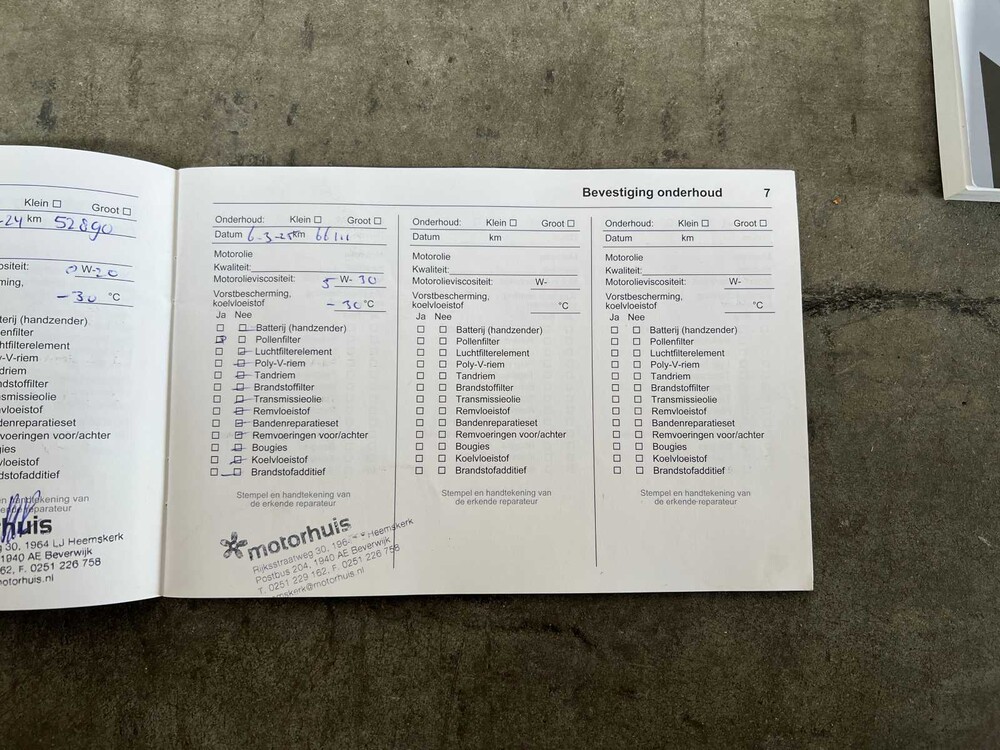 Klein Groot
-24 km 52890
ositeit: 0 W-20
ming,
-30 °C
terij (handzender)
lenfilter
htfilterelement
y-V-riem
driem
ndstoffilter
nsmissieolie
mvloeistof
ndenreparatieset
mvoeringen voor/achter
gies
elvloeistof
ndstofadditief
en handtekening van
erkende reparateur
huis
g 30, 1964 LJ Heemskerk
1940 AE Beverwijk
62, F. 0251 226 758
motorhuis.nl
Bevestiging onderhoud 7
Onderhoud: Klein Groot
Datum 6-3-25 km 66111
Motorolie
Kwaliteit:
Motorolieviscositeit: 5 W- 30
Vorstbescherming,
koelvloeistof -30 °C
Ja Nee
Batterij (handzender)
Pollenfilter
Luchtfilterelement
Poly-V-riem
Tandriem
Brandstoffilter
Transmissieolie
Remvloeistof
Bandenreparatieset
Remvoeringen voor/achter
Bougies
Koelvloeistof
Brandstofadditief
Stempel en handtekening van
de erkende reparateur
motorhuis
Rijksstraatweg 30, 196 Heemskerk
Postbus 204, 1940 AE Beverwijk
T. 0251 229 162, F. 0251 226 758
emskerk@motorhuis.nl
Onderhoud: Klein Groot
Datum km
Motorolie
Kwaliteit:
Motorolieviscositeit: W-
Vorstbescherming,
koelvloeistof °C
Ja Nee
Batterij (handzender)
Pollenfilter
Luchtfilterelement
Poly-V-riem
Tandriem
Brandstoffilter
Transmissieolie
Remvloeistof
Bandenreparatieset
Remvoeringen voor/achter
Bougies
Koelvloeistof
Brandstofadditief
Stempel en handtekening van
de erkende reparateur
Onderhoud: Klein Groot
Datum km
Motorolie
Kwaliteit:
Motorolieviscositeit: W-
Vorstbescherming,
koelvloeistof °C
Ja Nee
Batterij (handzender)
Pollenfilter
Luchtfilterelement
Poly-V-riem
Tandriem
Brandstoffilter
Transmissieolie
Remvloeistof
Bandenreparatieset
Remvoeringen voor/achter
Bougies
Koelvloeistof
Brandstofadditief
Stempel en handtekening van
de erkende reparateur